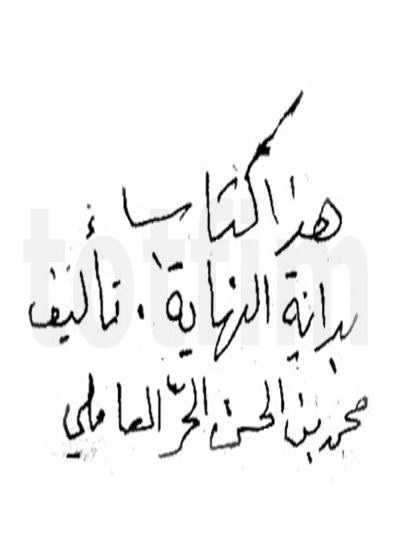 هذا كتاب
بداية النهاية . تأليف
محمد بن الحسن الحرّ العاملي